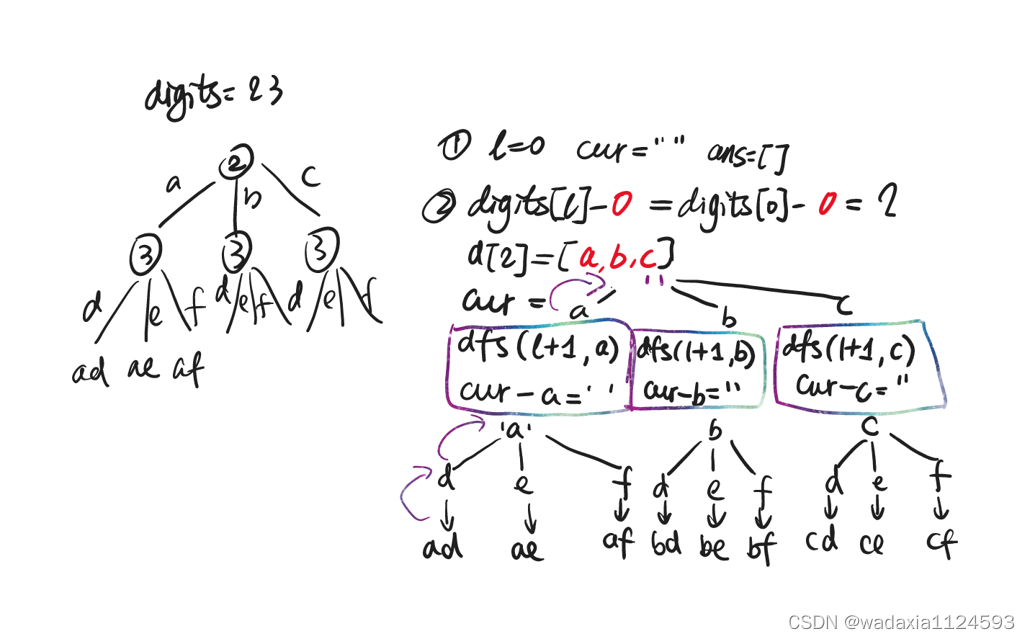 digits= 23
2
a b c
3 3 3
d e f d e f d e f
ad ae af
① l=0 cur="" ans=[]
② digits[l]-0 =digits[0]-0=2
d[2]=[a,b,c]
""
cur = a b c
dfs(l+1,a) dfs(l+1,b) dfs(l+1,c)
cur-a='' cur-b='' cur-c=''
'a' b c
d e f d e f d e f
ad ae af bd be bf cd ce cf
CSDN @wadaxia1124593